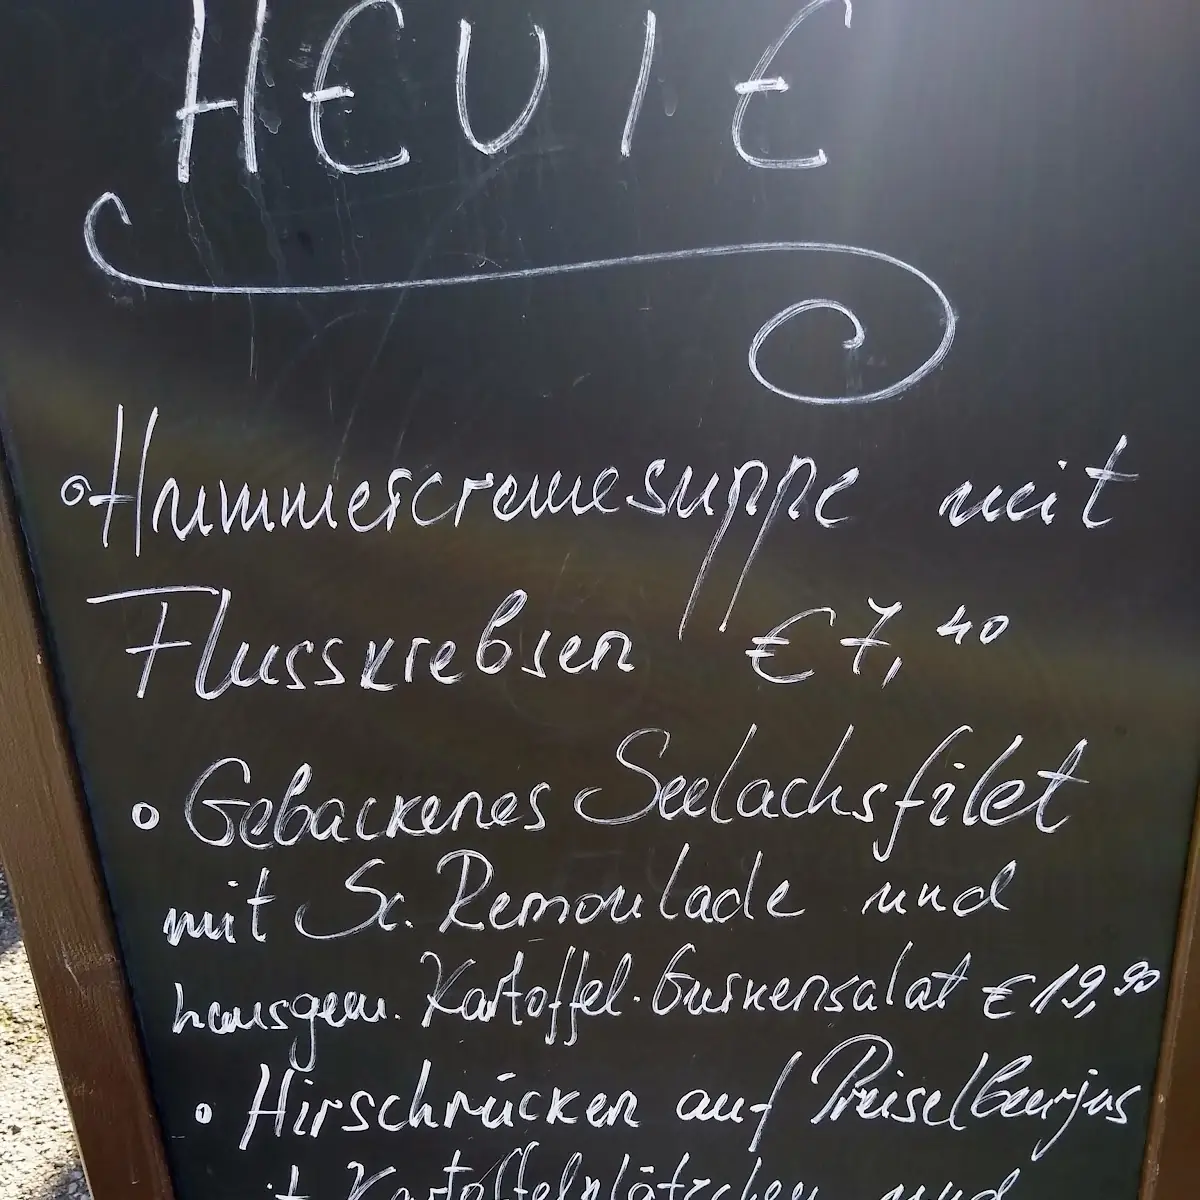 HEUTE
Hummercremesuppe mit
Flusskrebsen € 7,40
Gebackenes Seelachsfilet
mit Sc. Remoulade und
hausgem. Kartoffel-Gurkensalat € 19,90
Hirschrücken auf Preiselbeerjus
Kartoffelplätzchen und